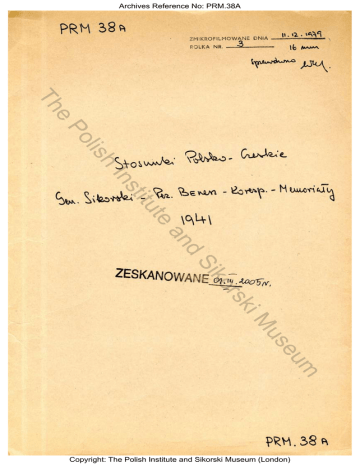 Archives Reference No: PRM.38A
PRM 38A
ZMIKROFILMOWANE DNIA 11.12.1979
ROLKA NR 3 16 mm
Sprawdzono
Stosunki Polsko-Czeskie
Gen. Sikorski - Prez. Benesz - Koresp. - Memoriały
1941
ZESKANOWANE 2005 r.
The Polish Institute and Sikorski Museum
PRM. 38A
Copyright: The Polish Institute and Sikorski Museum (London)